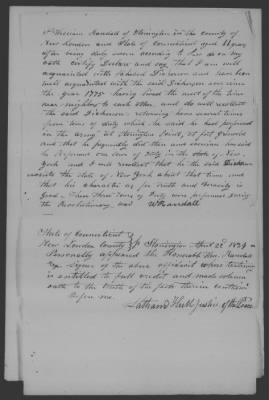 I William Randall of Stonington in the county of
New London and State of Connecticut aged 71 years
after being duly sworn according to law do on my
oath certify Declare and say that I am well
acquainted with Dickerson and have been
well acquainted with the said Dickerson ever since
the year 1775 having lived the most of the time
near neighbors to each other, and do well recollect
the said Dickerson returning home several times
from tours of duty which he said he had performed
in the army, at Stonington Point, at fort Griswold
and that he frequently did then and since has said
he performed one tour of duty in the State of New
York and I well recollect that he the said Dickerson
the State of New York about that time and
that his character as for truth and veracity is
good. Then tours of duty were performed during
the Revolutionary war W Randall
State of Connecticut
New London County Stonington April 22 1834
Personally appeared the Honorable Wm Randall
Esqr Signer of the above affidavit whose testimony
is entitled to full credit and made solemn
oath to the truth of the facts therein contained
Before me
Lathrop Hull Justice of the Peace